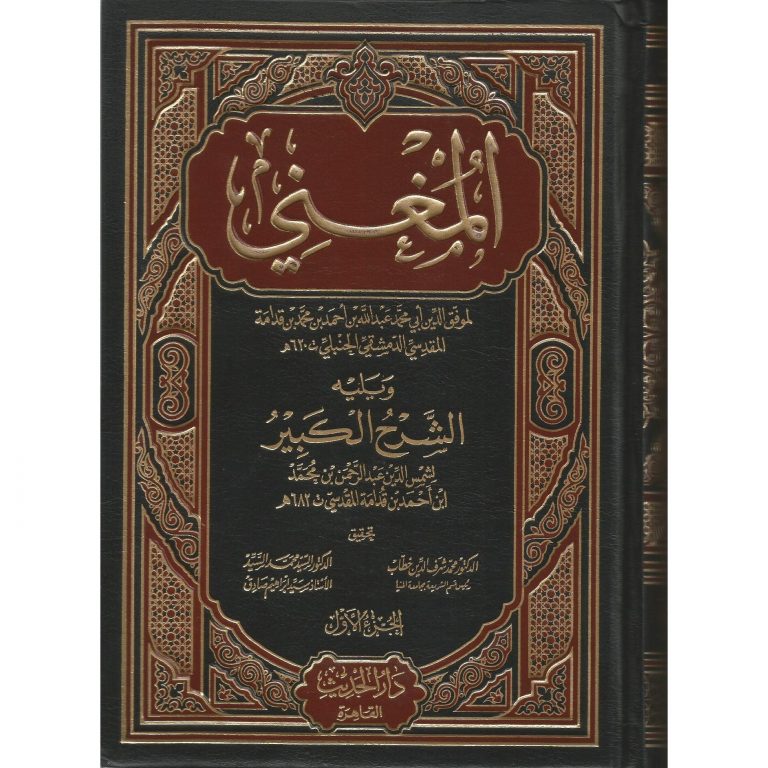 المُغْنِي
لموفق الدين أبي محمد عبد الله بن أحمد بن محمد بن قدامة
المقدسي الدمشقي الحنبلي ت ٦٢٠هـ
ويليه
الشَّرْحُ الكَبِيْرُ
لشمس الدين عبد الرحمن بن محمد
ابن أحمد بن قدامة المقدسي ت ٦٨٢هـ
تحقيق
الدكتور محمد شرف الدين خطاب
رئيس قسم الشريعة بجامعة المنيا
الدكتور السيد محمد السيد
الأستاذ سيد إبراهيم صادق
الجزء الأول
دار الحديث
القاهرة